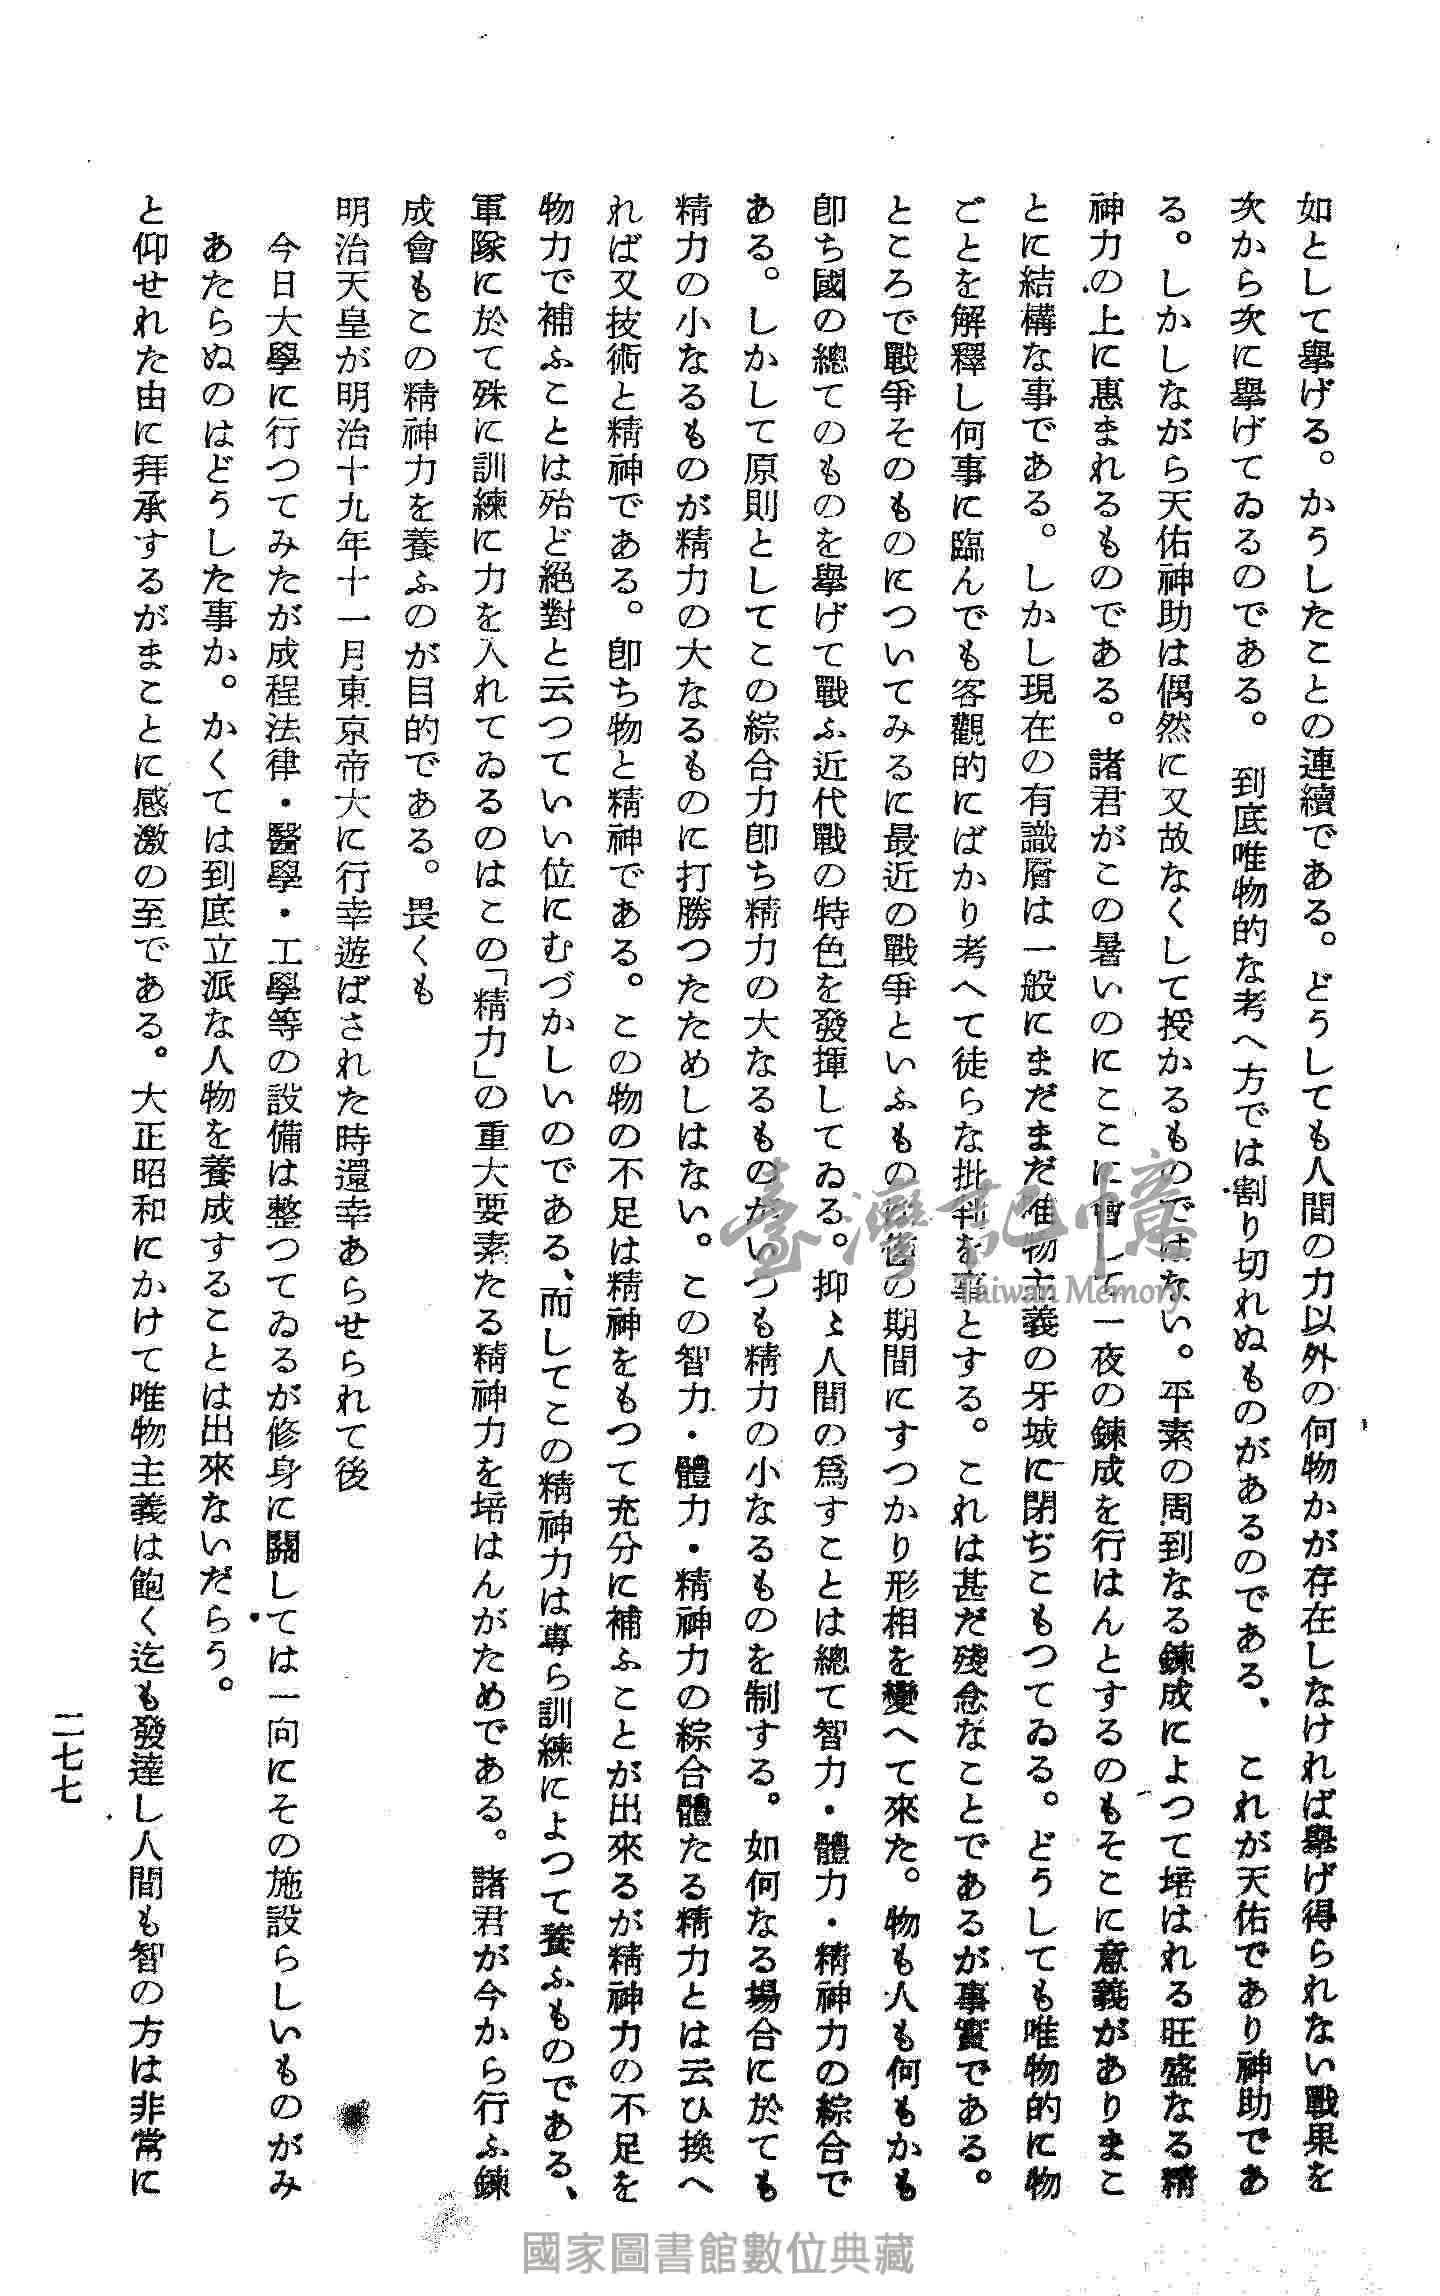 如として擧げる。かうしたことの連續である。どうしても人間の力以外の何物かが存在しなければ擧げ得られない戰果を
次から次に擧げてゐるのである。　到底唯物的な考へ方では割り切れぬものがあるのである、　これが天佑であり神助であ
る。しかしながら天佑神助は偶然に又故なくして授かるものではない。平素の周到なる鍊成によつて培はれる旺盛なる精
神力の上に惠まれるものである。諸君がこの暑いのにここに會して一夜の鍊成を行はんとするのもそこに意義がありまこ
とに結構な事である。しかし現在の有識層は一般にまだまだ唯物主義の牙城に閉ぢこもつてゐる。どうしても唯物的に物
ごとを解釋し何事に臨んでも客觀的にばかり考へて徒らな批判を事とする。これは甚だ殘念なことであるが事實である。
ところで戰爭そのものについてみるに最近の戰爭といふものはの期間にすつかり形相を變へて來た。物も人も何もかも
卽ち國の總てのものを擧げて戰ふ近代戰の特色を發揮してゐる。抑〻人間の爲すことは總て智力・體力・精神力の綜合で
ある。しかして原則としてこの綜合力卽ち精力の大なるものがいつも精力の小なるものを制する。如何なる場合に於ても
精力の小なるものが精力の大なるものに打勝つたためしはない。この智力・體力・精神力の綜合體たる精力とは云ひ換へ
れば又技術と精神である。卽ち物と精神である。この物の不足は精神をもつて充分に補ふことが出來るが精神力の不足を
物力で補ふことは殆ど絕對と云つていい位にむづかしいのである、而してこの精神力は專ら訓練によつて養ふものである、
軍隊に於て殊に訓練に力を入れてゐるのはこの「精力」の重大要素たる精神力を培はんがためである。諸君が今から行ふ鍊
成會もこの精神力を養ふのが目的である。畏くも
明治天皇が明治十九年十一月東京帝大に行幸遊ばされた時還幸あらせられて後
今日大學に行つてみたが成程法律・醫學・工學等の設備は整つてゐるが修身に關しては一向にその施設らしいものがみ
あたらぬのはどうした事か。かくては到底立派な人物を養成することは出來ないだらう。
と仰せれた由に拜承するがまことに感激の至である。大正昭和にかけて唯物主義は飽く迄も發達し人間も智の方は非常に
二七七
臺灣記憶
Taiwan Memory
國家圖書館數位典藏